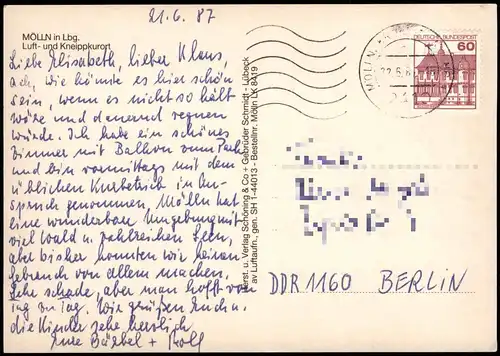 21.6.87
MÖLLN in Lbg.
Luft- und Kneippkurort
Liebe Elisabeth, lieber Klaus,
ach, wie könnte es hier schön
sein, wenn es nicht so kalt
wäre und dauernd regnen
würde. Ich habe ein schönes
Zimmer mit Balkon zum Park
und bin vormittags mit dem
üblichen Kurbetrieb in An-
spruch genommen, Mölln hat
eine wunderbare Umgebung mit
viel Wald u. zahlreichen Seen,
aber bisher konnten wir keinen
Gebrauch von allem machen.
Sehr schade, aber man hofft von
Tag zu Tag. Wir grüßen Euch u.
die Kinder sehr herzlich
Eure Bärbel + Rolf
Herst. u. Verlag Schöning & Co + Gebrüder Schmidt - Lübeck
av Luftaufn., gen. SH 1-44013 - Bestellnr. Mölln LK 8419
DEUTSCHE BUNDESPOST
60
MÖLLN
DDR 1160 BERLIN